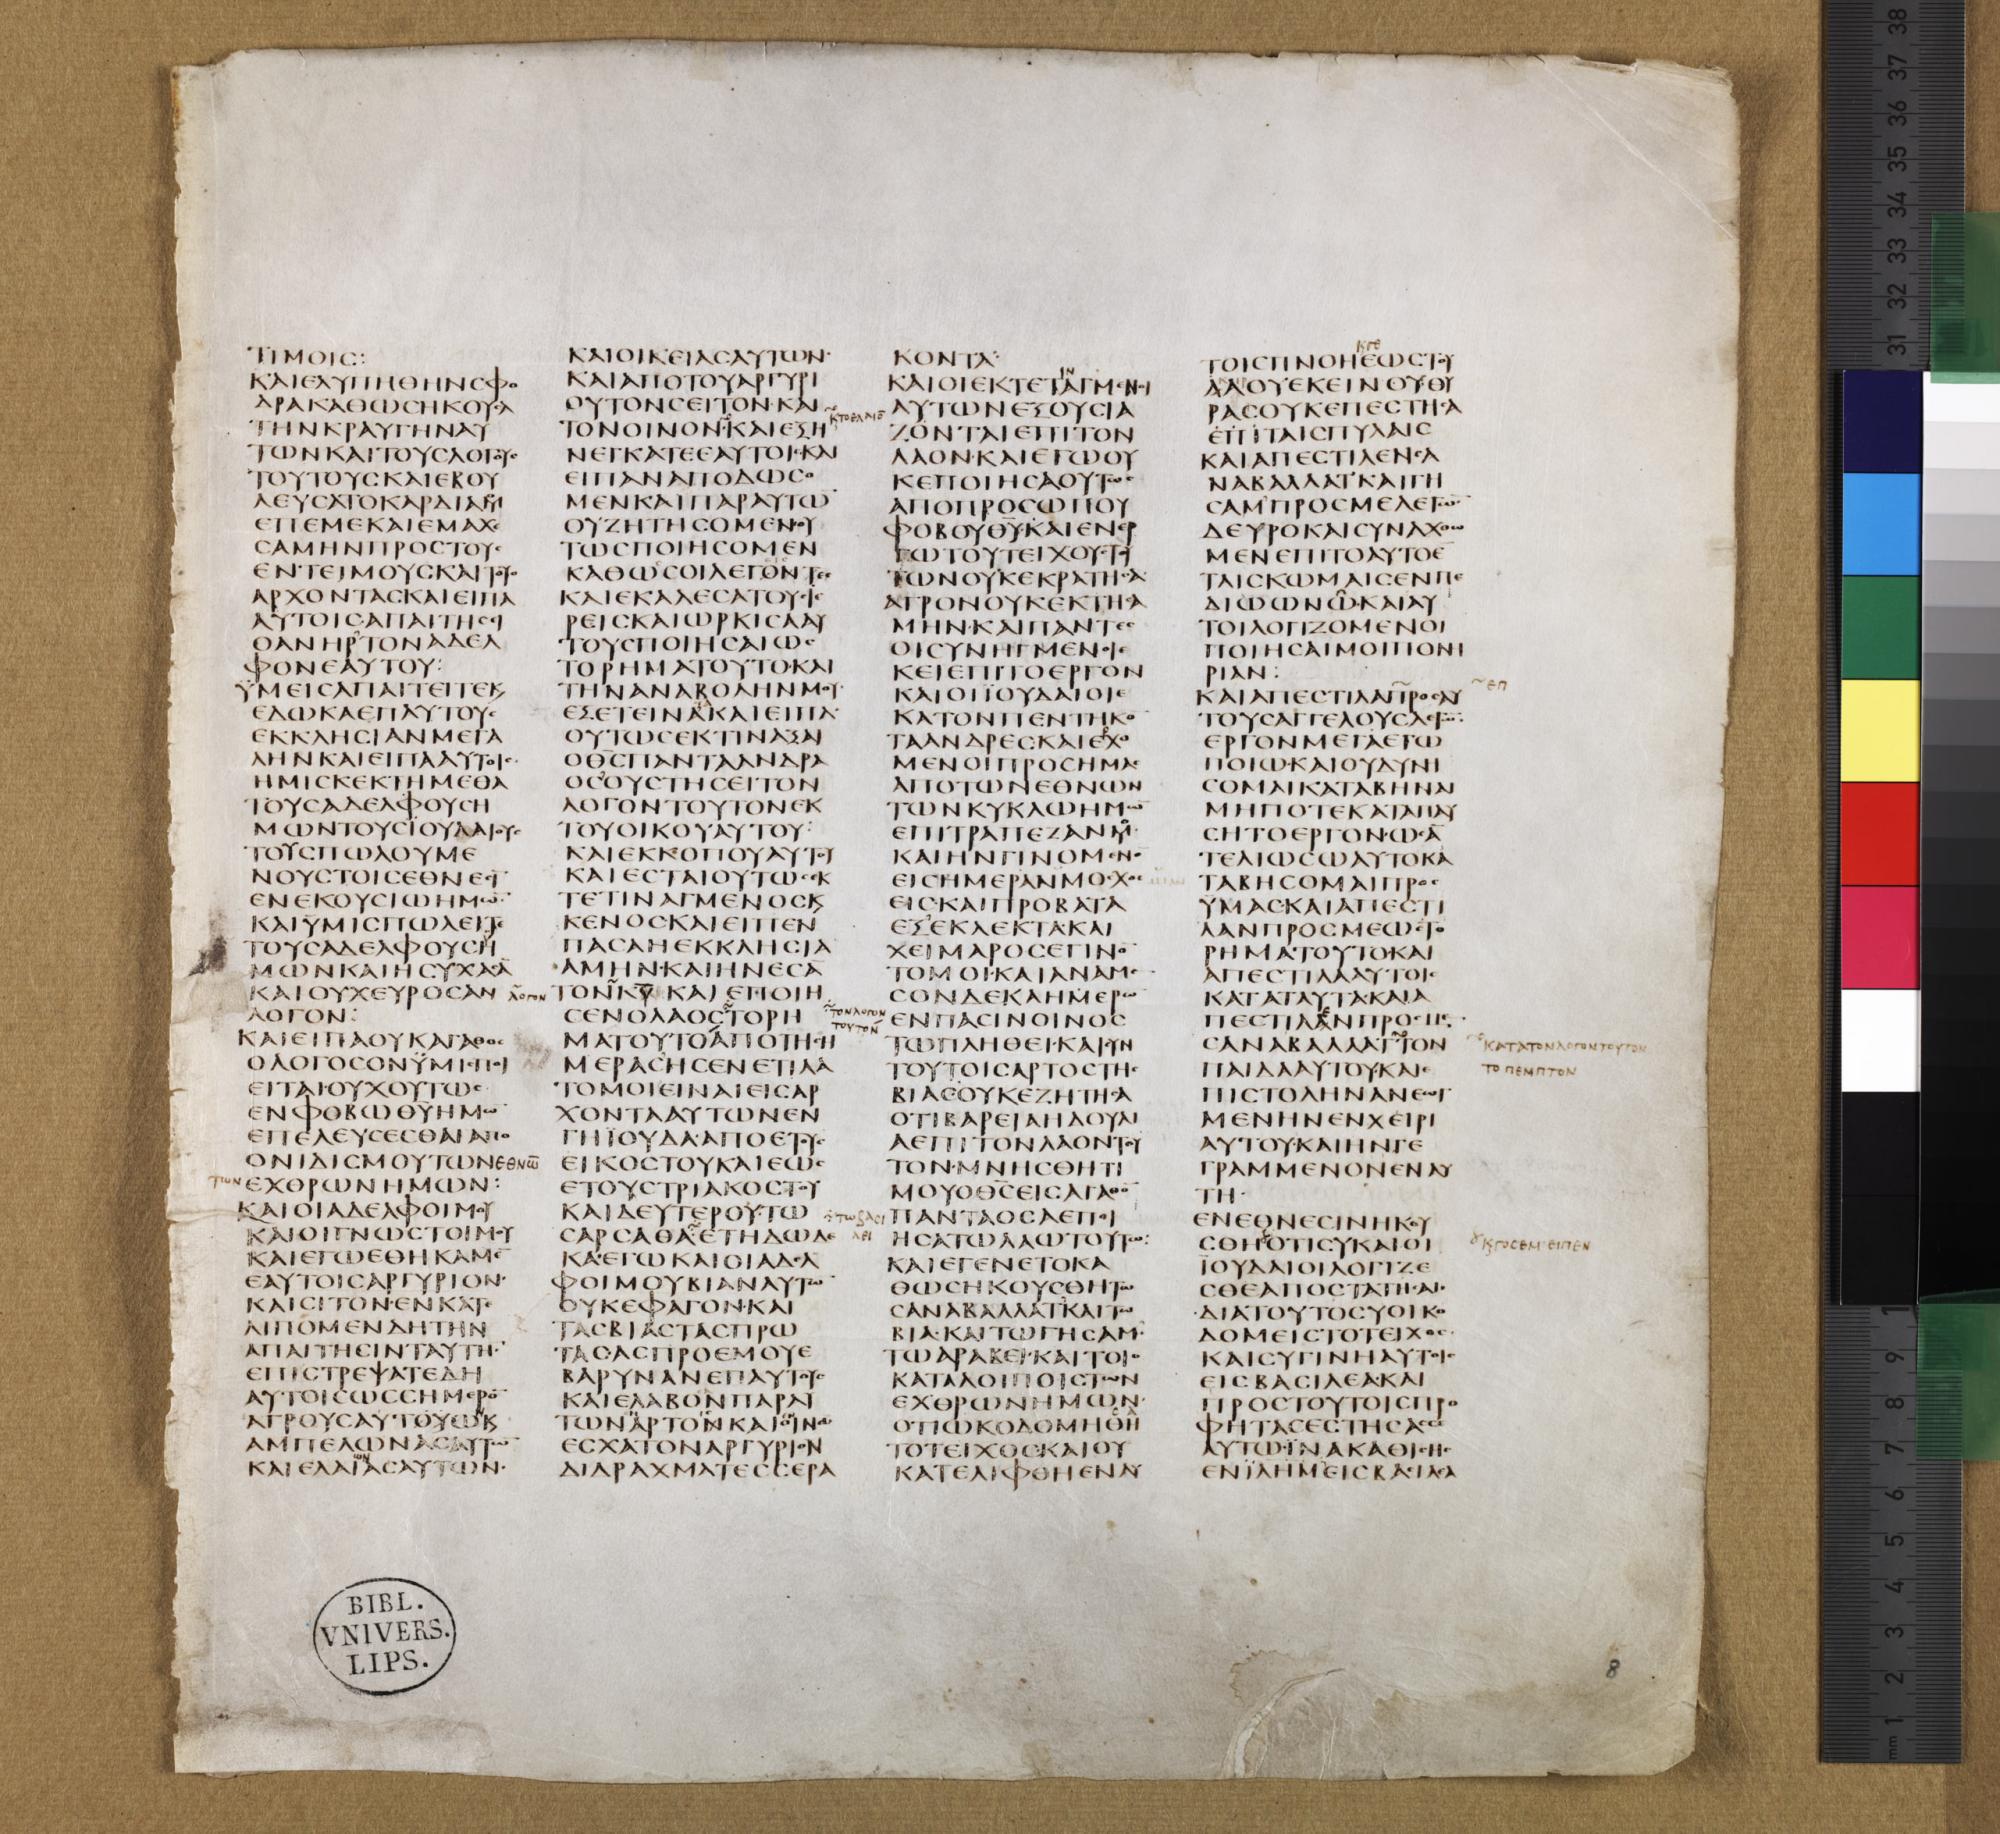 ΤΙΜΟΙϹ:
ΚΑΙΕΛΥΠΗΘΗΝϹΦΟ
ΔΡΑΚΑΘΩϹΗΚΟΥϹΑ
ΤΗΝΚΡΑΥΓΗΝΑΥ
ΤΩΝΚΑΙΤΟΥϹΛΟΓΟΥϹ
ΤΟΥΤΟΥϹΚΑΙΕΒΟΥ
ΛΕΥϹΑΤΟΚΑΡΔΙΑΜΟΥ
ΕΠΕΜΕΚΑΙΕΜΑΧΕ
ϹΑΜΗΝΠΡΟϹΤΟΥϹ
ΕΝΤΕΙΜΟΥϹΚΑΙΤΟΥϹ
ΑΡΧΟΝΤΑϹΚΑΙΕΙΠΑ
ΑΥΤΟΙϹΑΠΑΙΤΗϹΕΙ
ΟΑΝΗΡΤΟΝΑΔΕΛ
ΦΟΝΕΑΥΤΟΥ:
ΫΜΕΙϹΑΠΑΙΤΕΙΤΕΚ
ΕΔΩΚΑΕΠΑΥΤΟΥϹ
ΕΚΚΛΗϹΙΑΝΜΕΓΑ
ΛΗΝΚΑΙΕΙΠΑΑΥΤΟΙϹ
ΗΜΙϹΚΕΚΤΗΜΕΘΑ
ΤΟΥϹΑΔΕΛΦΟΥϹΗ
ΜΩΝΤΟΥϹΪΟΥΔΑΙΟΥϹ
ΤΟΥϹΠΩΛΟΥΜΕ
ΝΟΥϹΤΟΙϹΕΘΝΕϹΙ
ΕΝΕΚΟΥϹΙΩΗΜΩ
ΚΑΙΫΜΙϹΠΩΛΕΙΤΕ
ΤΟΥϹΑΔΕΛΦΟΥϹΗ
ΜΩΝΚΑΙΗϹΥΧΑϹΑ
ΚΑΙΟΥΧΕΥΡΟϹΑΝ ΛΟΓΟΝ
ΛΟΓΟΝ:
ΚΑΙΕΙΠΑΟΥΚΑΓΑΘΟϹ
ΟΛΟΓΟϹΟΝΫΜΙϹΠΟΙ
ΕΙΤΑΙΟΥΧΟΥΤΩϹ
ΕΝΦΟΒΩΘΥΗΜΩ
ΕΠΕΛΕΥϹΕϹΘΑΙΑΠΟ
ΟΝΙΔΙϹΜΟΥΤΩΝΕΘΝΩ
ΤΩΝ ΕΧΘΡΩΝΗΜΩΝ:
ΚΑΙΟΙΑΔΕΛΦΟΙΜΟΥ
ΚΑΙΟΙΓΝΩϹΤΟΙΜΟΥ
ΚΑΙΕΓΩΕΘΗΚΑΜΕ
ΕΑΥΤΟΙϹΑΡΓΥΡΙΟΝ·
ΚΑΙϹΙΤΟΝ·ΕΝΚΑΤΕ
ΛΙΠΟΜΕΝΔΗΤΗΝ
ΑΠΑΙΤΗϹΙΝΤΑΥΤΗ·
ΕΠΙϹΤΡΕΨΑΤΕΔΗ
ΑΥΤΟΙϹΩϹϹΗΜΕΡΟ
ΑΓΡΟΥϹΑΥΤΟΥΩΚ
ΑΜΠΕΛΩΝΑϹΑΥΤΩ
ΚΑΙΕΛΑΙΑϹΑΥΤΩΝ·
ΚΑΙΟΙΚΕΙΑϹΑΥΤΩΝ·
ΚΑΙΑΠΟΤΟΥΑΡΓΥΡΙ
ΟΥΤΟΝϹΕΙΤΟΝ·ΚΑΙ
ΤΟΝΟΙΝΟΝΚΑΙΕΞΗ ΚΤΟΕΛΑΙΟ
ΝΕΓΚΑΤΕΕΑΥΤΟΙϹΚΑΙ
ΕΙΠΑΝΑΠΟΔΩϹΟ
ΜΕΝΚΑΙΠΑΡΑΥΤΩ
ΟΥΖΗΤΗϹΟΜΕΝΟΥ
ΤΩϹΠΟΙΗϹΟΜΕΝ
ΚΑΘΩϹΟΙΛΕΓΟΝΤΕϹ
ΚΑΙΕΚΑΛΕϹΑΤΟΥϹΙΕ
ΡΕΙϹΚΑΙΩΡΚΙϹΑΑΥ
ΤΟΥϹΠΟΙΗϹΑΙΩϹ
ΤΟΡΗΜΑΤΟΥΤΟΚΑΙ
ΤΗΝΑΝΑΒΟΛΗΝΜΟΥ
ΕΞΕΤΕΙΝΑΚΑΙΕΙΠΑ·
ΟΥΤΩϹΕΚΤΙΝΑΞΑΙ
ΟΘϹΠΑΝΤΑΑΝΔΡΑ
ΟϹΟΥϹΤΗϹΕΙΤΟΝ
ΛΟΓΟΝΤΟΥΤΟΝΕΚ
ΤΟΥΟΙΚΟΥΑΥΤΟΥ:
ΚΑΙΕΚΚΟΠΟΥΑΥΤΟΥ
ΚΑΙΕϹΤΑΙΟΥΤΩϹΕΚ
ΤΕΤΙΝΑΓΜΕΝΟϹΚ
ΚΕΝΟϹΚΑΙΕΙΠΕΝ
ΠΑϹΑΗΕΚΚΛΗϹΙΑ
ΑΜΗΝ·ΚΑΙΗΝΕϹΑ
ΤΟΝΚΝ ΚΑΙΕΠΟΙΗ
ϹΕΝΟΛΑΟϹΤΟΡΗ ΤΟΝΛΟΓΟΝ
ΜΑΤΟΥΤΟΑΠΟΤΗϹΗ ΤΟΥΤΟΝ
ΜΕΡΑϹΗϹΕΝΕΤΙΛΑ
ΤΟΜΟΙΕΙΝΑΙΕΙϹΑΡ
ΧΟΝΤΑΑΥΤΩΝΕΝ
ΓΗΪΟΥΔΑ·ΑΠΟΕΤΟΥϹ
ΕΙΚΟϹΤΟΥΚΑΙΕΩϹ
ΕΤΟΥϹΤΡΙΑΚΟϹΤΟΥ
ΚΑΙΔΕΥΤΕΡΟΥΤΩ
ϹΑΡϹΑΘΑΕΤΗΔΩΔΕ
ΚΑ·ΕΓΩΚΑΙΟΙΑΔΕΛ
ΦΟΙΜΟΥΒΙΑΝΑΥΤΩ
ΟΥΚΕΦΑΓΟΝ·ΚΑΙ
ΤΑϹΒΙΑϹΤΑϹΠΡΩ
ΤΑϹΑϹΠΡΟΕΜΟΥΕ
ΒΑΡΥΝΑΝΕΠΑΥΤΟΥϹ
ΚΑΙΕΛΑΒΟΝΠΑΡΑΥ
ΤΩΝΑΡΤΟΙϹΚΑΙΟΙΝΩ
ΕϹΧΑΤΟΝΑΡΓΥΡΙΟΝ
ΔΙΔΡΑΧΜΑΤΕϹϹΕΡΑ
ΚΟΝΤΑ·
ΚΑΙΟΙΕΚΤΕΤΑΓΜΕΝΟΙ
ΑΥΤΩΝΕΞΟΥϹΙΑ
ΖΟΝΤΑΙΕΠΙΤΟΝ
ΛΑΟΝ·ΚΑΙΕΓΩΟΥ
ΚΕΠΟΙΗϹΑΟΥΤΩϹ
ΑΠΟΠΡΟϹΩΠΟΥ
ΦΟΒΟΥΘΥ·ΚΑΙΕΝΕΡ
ΓΩΤΟΥΤΕΙΧΟΥϹΤΟΥ
ΤΩΝΟΥΚΕΚΡΑΤΗϹΑ·
ΑΓΡΟΝΟΥΚΕΚΤΗϹΑ
ΜΗΝ·ΚΑΙΠΑΝΤΕϹ
ΟΙϹΥΝΗΓΜΕΝΟΙΕ
ΚΕΙΕΠΙΤΟΕΡΓΟΝ
ΚΑΙΟΙΪΟΥΔΑΙΟΙΕ
ΚΑΤΟΝΠΕΝΤΗΚΟ
ΤΑΑΝΔΡΕϹΚΑΙΕΧΟ
ΜΕΝΟΙΠΡΟϹΗΜΑϹ
ΑΠΟΤΩΝΕΘΝΩΝ
ΤΩΝΚΥΚΛΩΗΜΩ
ΕΠΙΤΡΑΠΕΖΑΝΜΟΥ
ΚΑΙΗΝΓΙΝΟΜΕΝΟ
ΕΙϹΗΜΕΡΑΝΜΟϹΧΟϹ
ΕΙϹΚΑΙΠΡΟΒΑΤΑ
ΕΞΕΚΛΕΚΤΑ·ΚΑΙ
ΧΕΙΜΑΡΟϹΕΓΙΝΟ
ΤΟΜΟΙ·ΚΑΙΑΝΑΜΕ
ϹΟΝΔΕΚΑΗΜΕΡΩ
ΕΝΠΑϹΙΝΟΙΝΟϹ
ΤΩΠΛΗΘΕΙ·ΚΑΙϹΥΝ
ΤΟΥΤΟΙϹΑΡΤΟϹΤΗϹ
ΒΙΑϹΟΥΚΕΖΗΤΗϹΑ
ΟΤΙΒΑΡΕΙΑΗΔΟΥΛΙ
ΑΕΠΙΤΟΝΛΑΟΝΤΟΥ
ΤΟΝ·ΜΝΗϹΘΗΤΙ
ΜΟΥΟΘϹΕΙϹΑΓΑΘΟ
ΠΑΝΤΑΟϹΑΕΠΟΙ
ΗϹΑΤΩΛΑΩΤΟΥΤΩ:
ΚΑΙΕΓΕΝΕΤΟΚΑ
ΘΩϹΗΚΟΥϹΘΗΤΩ
ϹΑΝΑΒΑΛΛΑΤΚΑΙΤΩ
ΒΙΑ·ΚΑΙΤΩΓΗϹΑΜ·
ΤΩΑΡΑΒΕΙ·ΚΑΙΤΟΙϹ
ΚΑΤΑΛΟΙΠΟΙϹΤΩΝ
ΕΧΘΡΩΝΗΜΩΝ·
ΟΤΙΩΚΟΔΟΜΗΘΗ
ΤΟΤΕΙΧΟϹΚΑΙΟΥ
ΚΑΤΕΛΙΦΘΗΕΝΑΥ
ΤΟΙϹΠΝΟΗΕΩϹΤΟΥ
ΚΑΙΡΟΥΕΚΕΙΝΟΥΘΥ
ΡΑϹΟΥΚΕΠΕϹΤΗϹΑ
ΕΠΙΤΑΙϹΠΥΛΑΙϹ
ΚΑΙΑΠΕϹΤΙΛΕΝϹΑ
ΝΑΒΑΛΛΑΤΚΑΙΓΗ
ϹΑΜΠΡΟϹΜΕΛΕΓΩ
ΔΕΥΡΟΚΑΙϹΥΝΑΧΘΩ
ΜΕΝΕΠΙΤΟΑΥΤΟΕ
ΤΑΙϹΚΩΜΑΙϹΕΝΠΕ
ΔΙΩΩΝΩ·ΚΑΙΑΥ
ΤΟΙΛΟΓΙΖΟΜΕΝΟΙ
ΠΟΙΗϹΑΙΜΟΙΠΟΝΗ
ΡΙΑΝ:
ΚΑΙΑΠΕϹΤΙΛΑΠΡΟϹΑΥ
ΤΟΥϹΑΓΓΕΛΟΥϹΛΕΓΩ:
ΕΡΓΟΝΜΕΓΑΕΓΩ
ΠΟΙΩ·ΚΑΙΟΥΔΥΝΗ
ϹΟΜΑΙΚΑΤΑΒΗΝΑΙ
ΜΗΠΟΤΕΚΑΤΑΠΑΥ
ϹΗΤΟΕΡΓΟΝ·ΩϹΑ
ΤΕΛΙΩϹΩΑΥΤΟΚΑ
ΤΑΒΗϹΟΜΑΙΠΡΟϹ
ΫΜΑϹΚΑΙΑΠΕϹΤΙ
ΛΑΝΠΡΟϹΜΕΩϹΤΟ
ΡΗΜΑΤΟΥΤΟΚΑΙ
ΑΠΕϹΤΙΛΑΑΥΤΟΙϹ
ΚΑΤΑΤΑΥΤΑΚΑΙΑ
ΠΕϹΤΙΛΑΝΠΡΟϹΜΕ
ϹΑΝΑΒΑΛΛΑΤΤΟΝ ΚΑΤΑΤΟΝΛΟΓΟΝΤΟΥΤΟΝ
ΠΑΙΔΑΑΥΤΟΥΚΑΙΕ ΤΟΠΕΜΠΤΟΝ
ΠΙϹΤΟΛΗΝΑΝΕΩΓ
ΜΕΝΗΝΕΝΧΕΙΡΙ
ΑΥΤΟΥ·ΚΑΙΗΝΓΕ
ΓΡΑΜΜΕΝΟΝΕΝΑΥ
ΤΗ·
ΕΝΕΘΝΕϹΙΝΗΚΟΥ
ϹΘΗΟΤΙϹΥΚΑΙΟΙ
ΪΟΥΔΑΙΟΙΛΟΓΙΖΕ
ϹΘΕΑΠΟϹΤΑΤΗϹΑΙ·
ΔΙΑΤΟΥΤΟϹΥΟΙΚΟ
ΔΟΜΕΙϹΤΟΤΕΙΧΟϹ·
ΚΑΙϹΥΓΙΝΗΑΥΤΟΙϹ
ΕΙϹΒΑϹΙΛΕΑ·ΚΑΙ
ΠΡΟϹΤΟΥΤΟΙϹΠΡΟ
ΦΗΤΑϹΕϹΤΗϹΑϹ
ΑΥΤΩΪΝΑΚΑΘΙϹΗϹ
ΕΝΪΛΗΜΕΙϹΒΑϹΙΛΕΑ
BIBL.
VNIVERS.
LIPS.
8